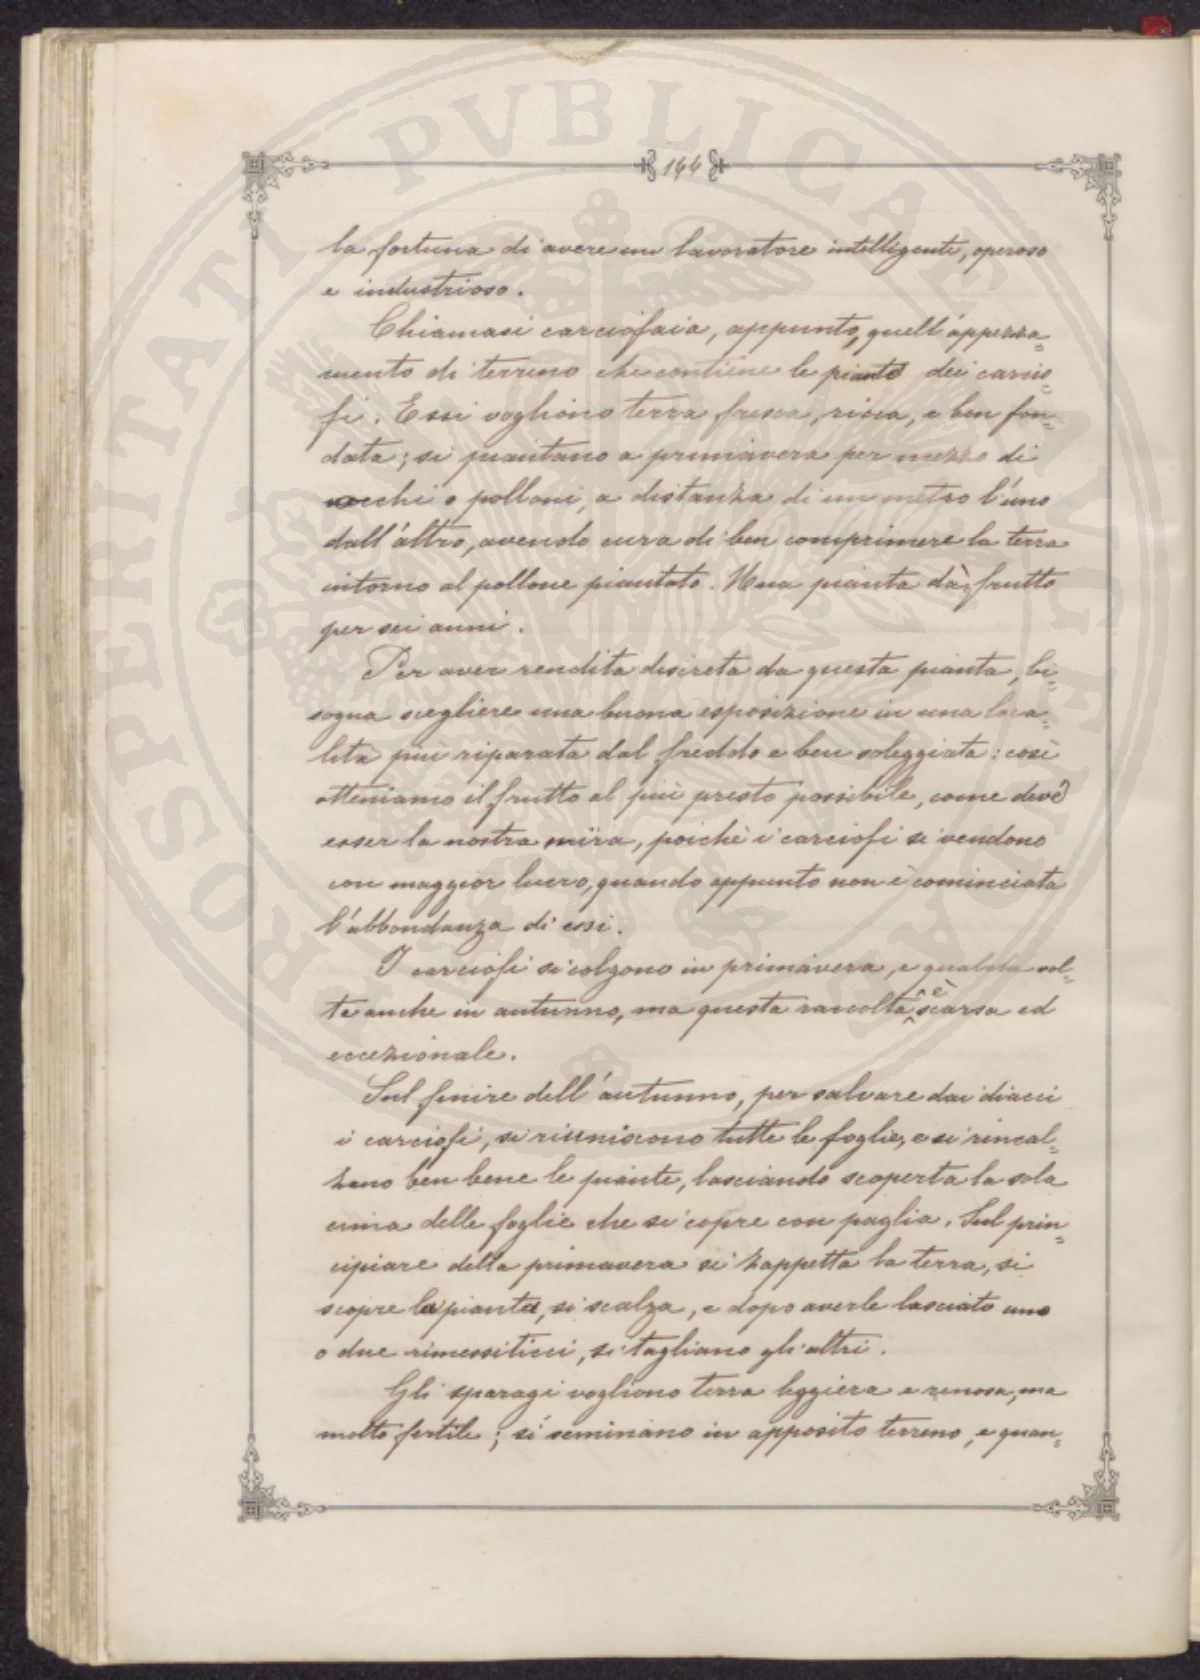 144
la fortuna di avere un lavoratore intelligente, operoso
e industrioso.
Chiamasi carciofaia, appunto, quell'appezza=
mento di terreno che contiene le piante dei carcio=
fi. Essi vogliono terra fresca, ricca, e ben fon=
data; si piantano a primavera per mezzo di
occhi o polloni, a distanza di un metro l'uno
dall'altro, avendo cura di ben comprimere la terra
intorno al pollone piantato. Una pianta dà frutto
per sei anni.
Per aver rendita discreta da questa pianta, bi=
sogna scegliere una buona esposizione in una loca=
lità più riparata dal freddo e ben soleggiata: così
otteniamo il frutto al più presto possibile, come deve
esser la nostra mira, poichè i carciofi si vendono
con maggior lucro, quando appunto non è cominciata
l'abbondanza di essi.
I carciofi si colgono in primavera, e qualche vol=
ta anche in autunno, ma questa raccolta è scarsa ed
eccezionale.
Sul finire dell'autunno, per salvare dai diacci
i carciofi, si riuniscono tutte le foglie, e si rincal=
zano ben bene le piante, lasciando scoperta la sola
cima delle foglie che si copre con paglia. Sul prin=
cipiare della primavera si zappetta la terra, si
scopre la pianta, si scalza, e dopo averle lasciato uno
o due rimessiticci, si tagliano gli altri.
Gli sparagi vogliono terra leggiera e renosa, ma
molto fertile; si seminano in apposito terreno, e quan=
PROSPERITATI PVBLICAE AVGENDAE